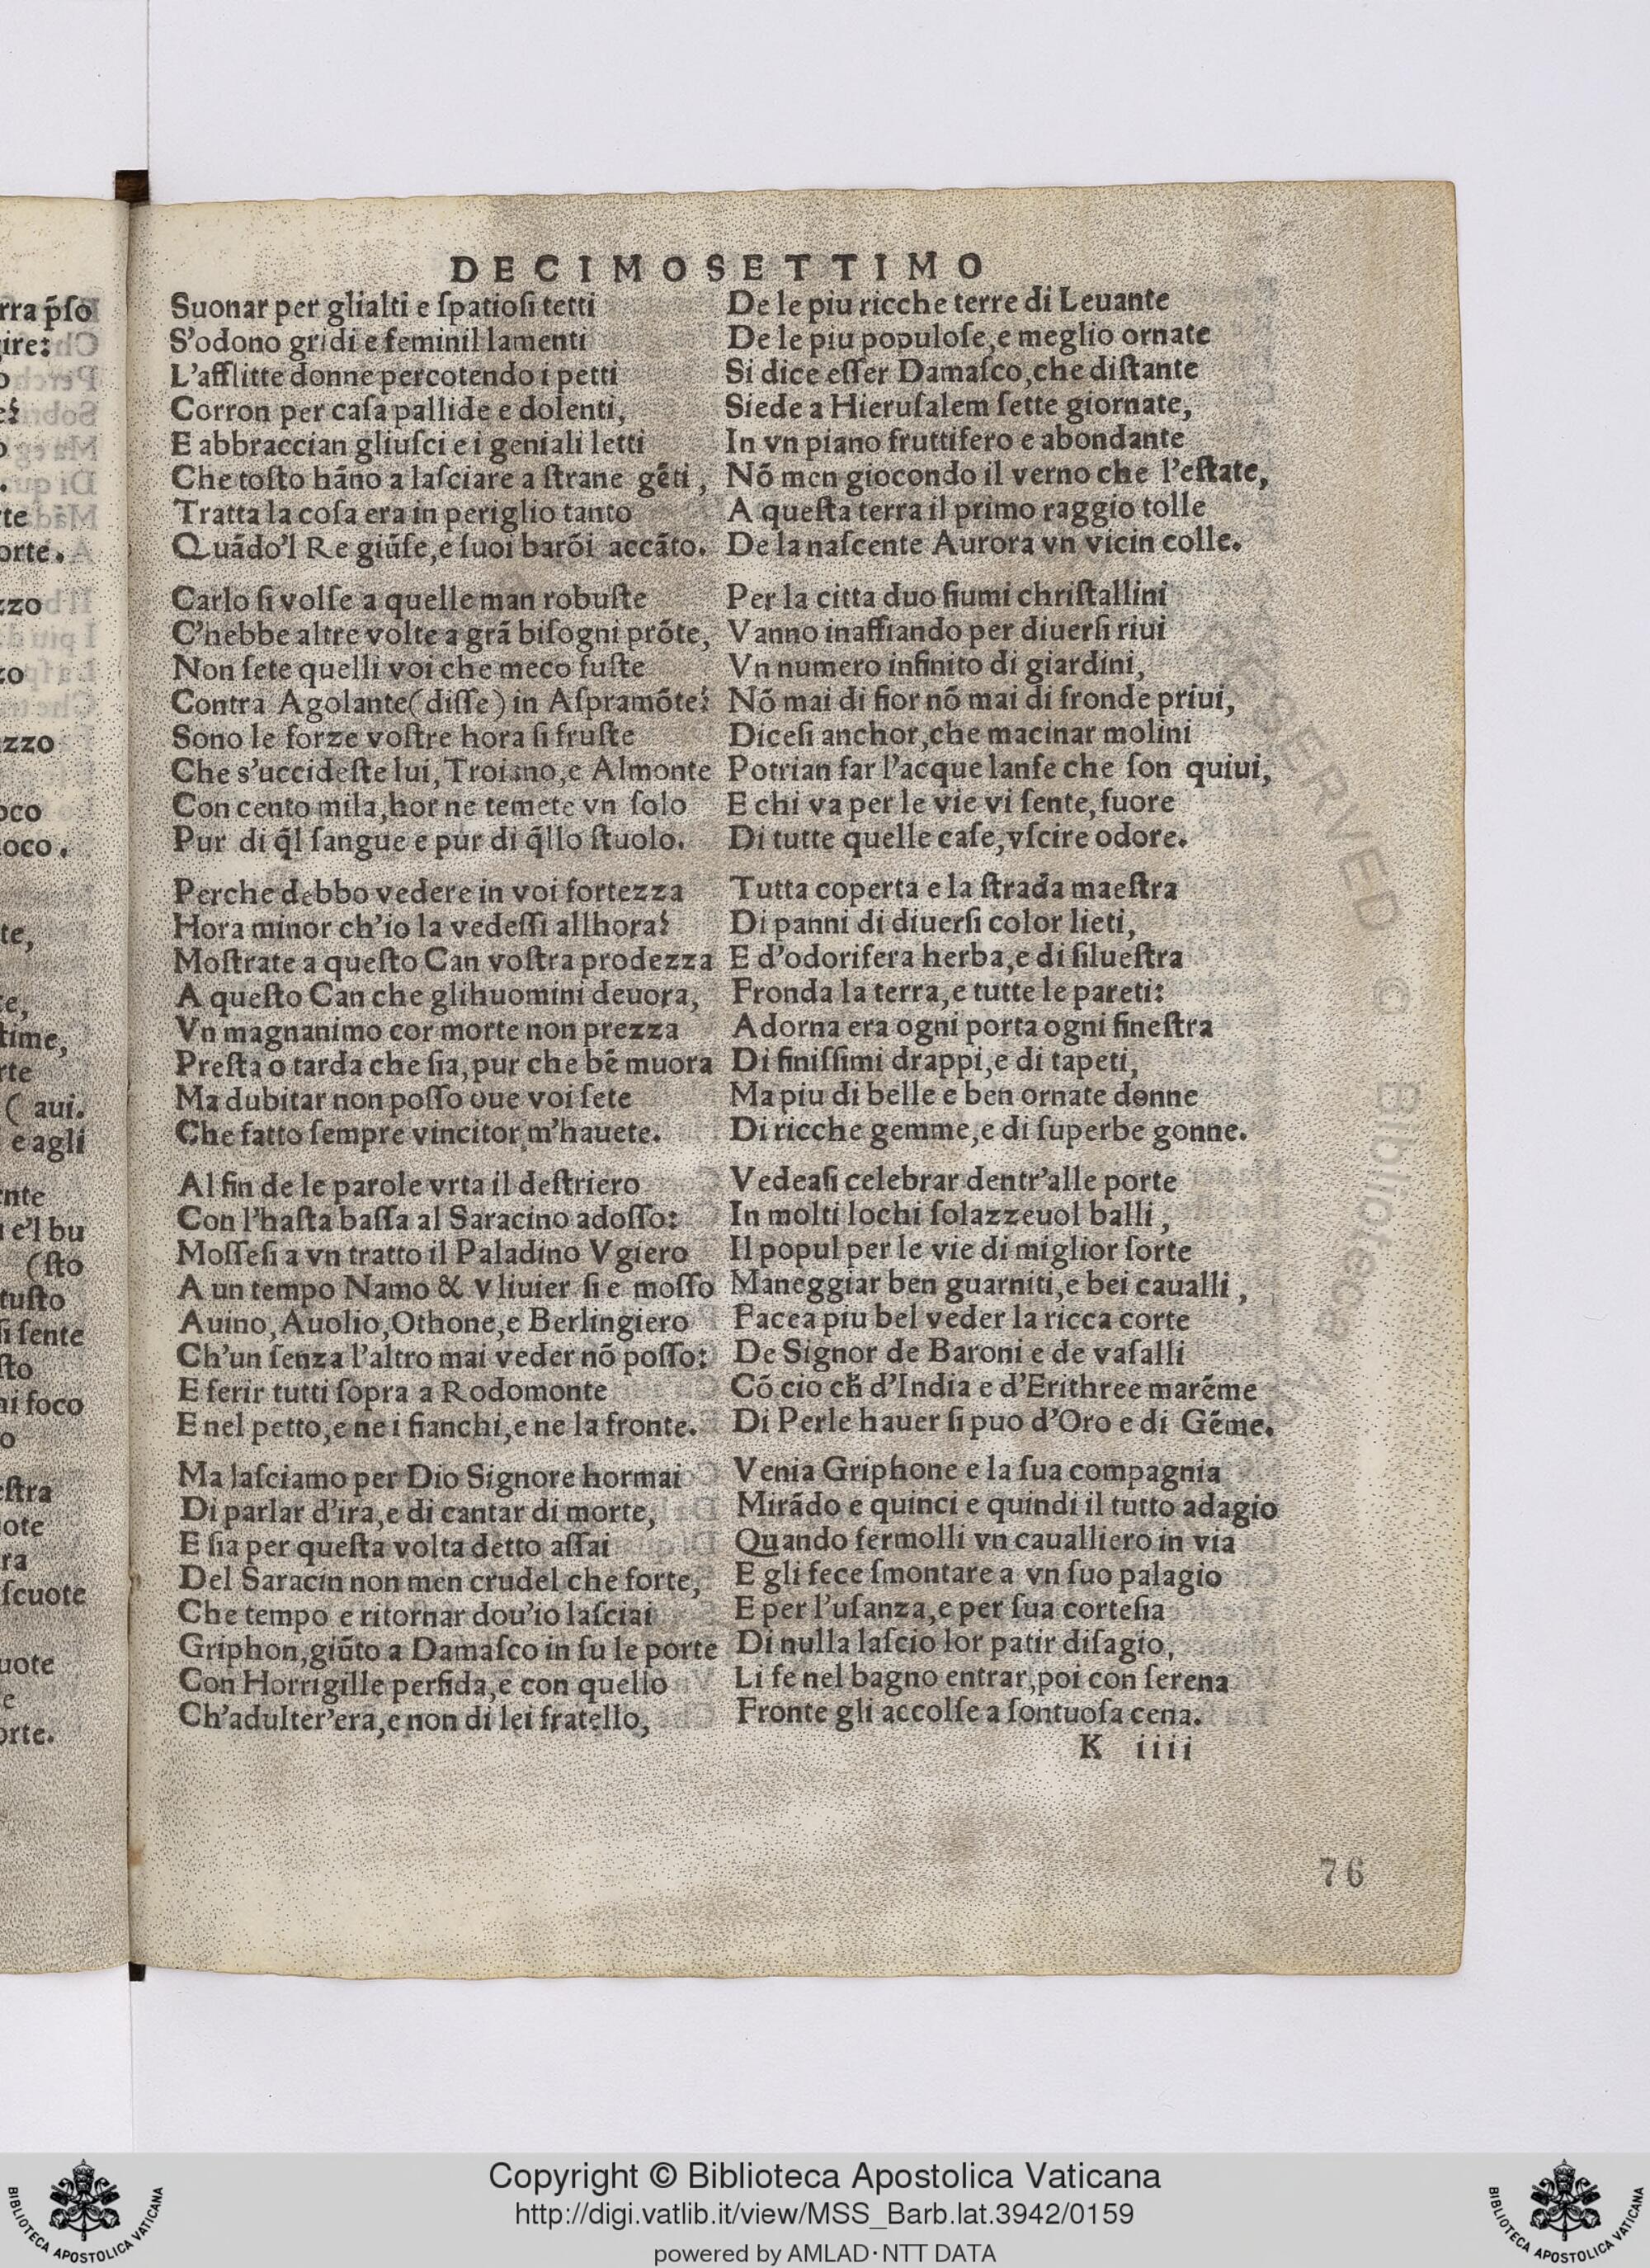 DECIMOSETTIMO
Suonar per glialti e ſpatioſi tetti
S'odono gridi e feminil lamenti
L'afflitte donne percotendo i petti
Corron per caſa pallide e dolenti,
E abbraccian gliuſci e i geniali letti
Che toſto hãno a laſciare a ſtrane gẽti,
Tratta la coſa era in periglio tanto
Quãdo'l Re giũſe, e ſuoi barõi accãto.
Carlo ſi volſe a quelle man robuſte
C'hebbe altre volte a grã biſogni prõte,
Non ſete quelli voi che meco fuſte
Contra Agolante (diſſe) in Aſpramõte?
Sono le forze voſtre hora ſi fruſte
Che s'uccideſte lui, Troiano, e Almonte
Con cento mila, hor ne temete vn ſolo
Pur di q̃l ſangue e pur di q̃llo ſtuolo.
Perche debbo vedere in voi fortezza
Hora minor ch'io la vedeſſi allhora?
Moſtrate a queſto Can voſtra prodezza
A queſto Can che glihuomini deuora,
Vn magnanimo cor morte non prezza
Preſta o tarda che ſia, pur che bẽ muora
Ma dubitar non poſſo oue voi ſete
Che fatto ſempre vincitor m'hauete.
Al fin de le parole vrta il deſtriero
Con l'haſta baſſa al Saracino adoſſo:
Moſſeſi a vn tratto il Paladino Vgiero
A un tempo Namo & Vliuier ſi e moſſo
Auino, Auolio, Othone, e Berlingiero
Ch'un ſenza l'altro mai veder nõ poſſo:
E ferir tutti ſopra a Rodomonte
E nel petto, e ne i fianchi, e ne la fronte.
Ma laſciamo per Dio Signore hormai
Di parlar d'ira, e di cantar di morte,
E ſia per queſta volta detto aſſai
Del Saracin non men crudel che forte,
Che tempo e ritornar dou'io laſciai
Griphon, giũto a Damaſco in ſu le porte
Con Horrigille perfida, e con quello
Ch'adulter'era, e non di lei fratello,
De le piu ricche terre di Leuante
De le piu populoſe, e meglio ornate
Si dice eſſer Damaſco, che diſtante
Siede a Hieruſalem ſette giornate,
In vn piano fruttifero e abondante
Nõ men giocondo il verno che l'eſtate,
A queſta terra il primo raggio tolle
De la naſcente Aurora vn vicin colle.
Per la citta duo fiumi chriſtallini
Vanno inaffiando per diuerſi riui
Vn numero infinito di giardini,
Nõ mai di fior nõ mai di fronde priui,
Diceſi anchor, che macinar molini
Potrian far l'acque lanfe che ſon quiui,
E chi va per le vie vi ſente, fuore
Di tutte quelle caſe, vſcire odore.
Tutta coperta e la ſtrada maeſtra
Di panni di diuerſi color lieti,
E d'odorifera herba, e di ſilueſtra
Fronda la terra, e tutte le pareti:
Adorna era ogni porta ogni fineſtra
Di finiſſimi drappi, e di tapeti,
Ma piu di belle e ben ornate donne
Di ricche gemme, e di ſuperbe gonne.
Vedeaſi celebrar dentr'alle porte
In molti lochi ſolazzeuol balli,
Il popul per le vie di miglior ſorte
Maneggiar ben guarniti, e bei caualli,
Facea piu bel veder la ricca corte
De Signor de Baroni e de vaſalli
Cõ cio ch̃ d'India e d'Erithree marẽme
Di Perle hauer ſi puo d'Oro e di Gẽme.
Venia Griphone e la ſua compagnia
Mirãdo e quinci e quindi il tutto adagio
Quando fermolli vn caualliero in via
E gli fece ſmontare a vn ſuo palagio
E per l'uſanza, e per ſua corteſia
Di nulla laſcio lor patir diſagio,
Li fe nel bagno entrar, poi con ſerena
Fronte gli accolſe a ſontuoſa cena.
K iiii
76
Copyright © Biblioteca Apostolica Vaticana
http://digi.vatlib.it/view/MSS_Barb.lat.3942/0159
powered by AMLAD·NTT DATA
BIBLIOTECA APOSTOLICA VATICANA
BIBLIOTECA APOSTOLICA VATICANA